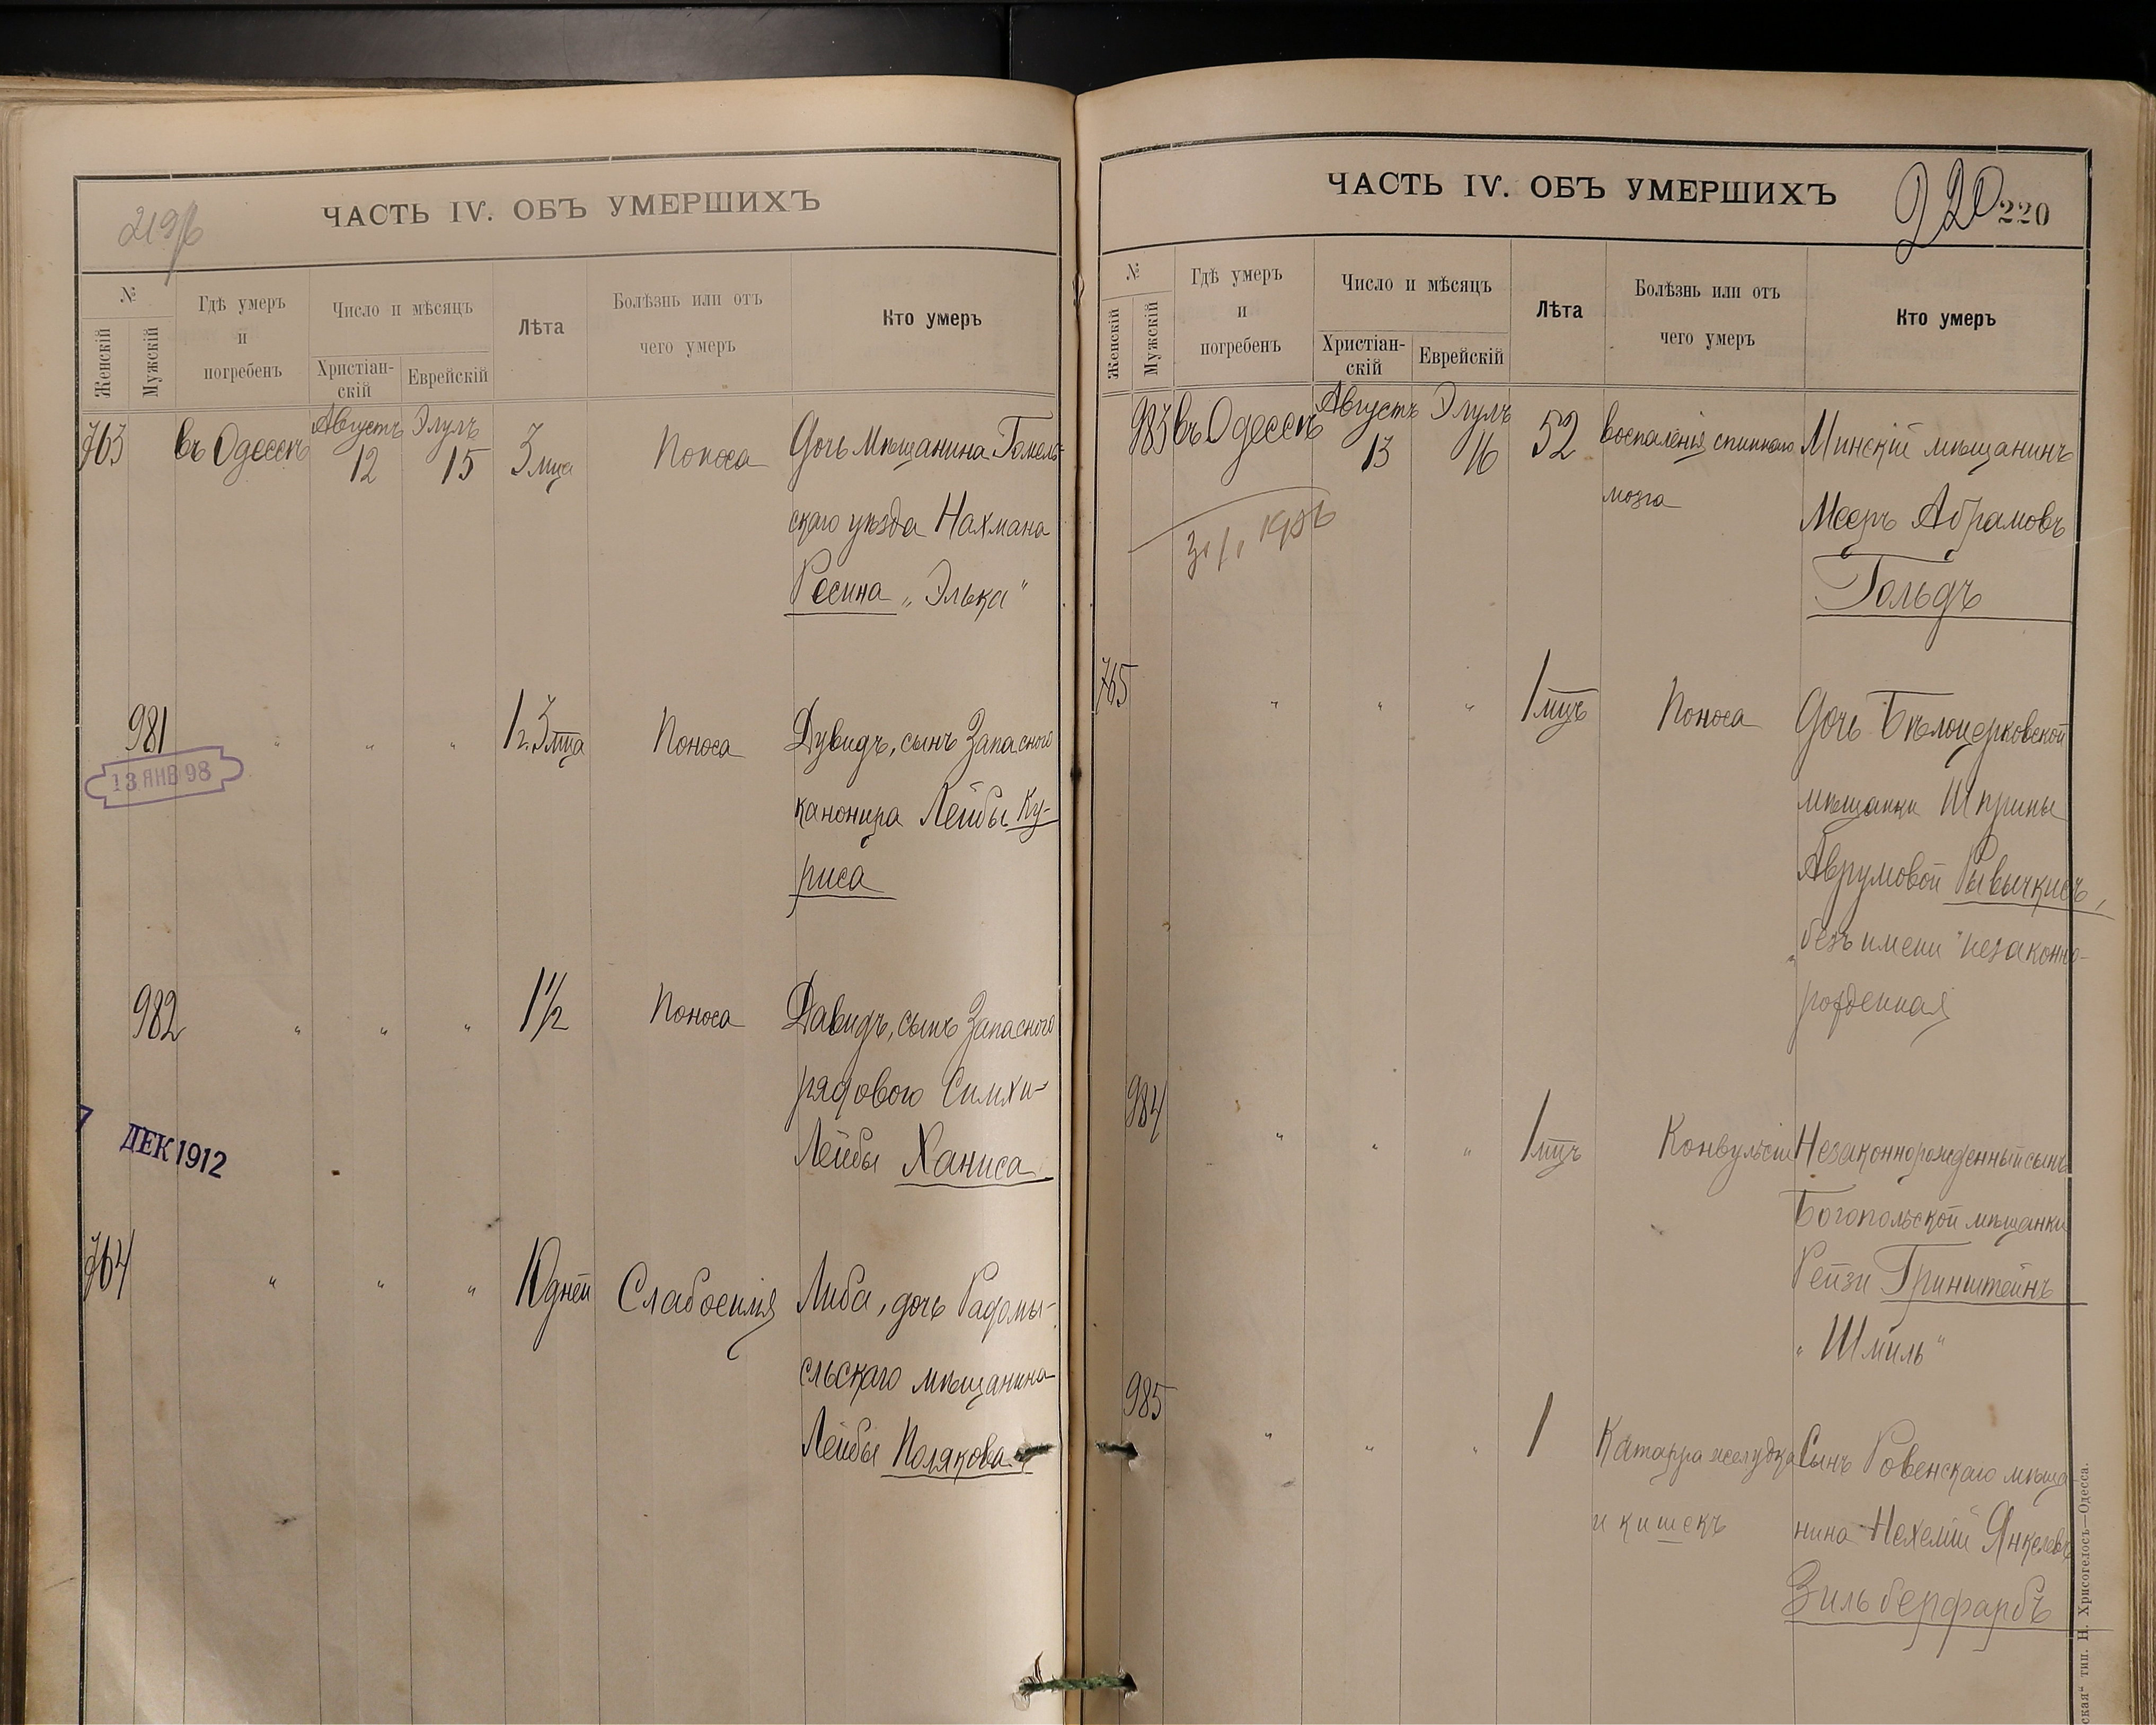 219б
ЧАСТЬ IV. ОБЪ УМЕРШИХЪ
№
Женскій
Мужскій
Гдѣ умеръ
и
погребенъ
Число и мѣсяцъ
Христіан-
скій
Еврейскій
Лѣта
Болѣзнь или отъ
чего умеръ
Кто умеръ
763 въ Одессѣ Августъ 12 Элулъ 15 3 мца Поноса Дочь мѣщанина Гомель-
скаго уѣзда Нахмана
Ресина „Элька"
981 " " " 1 г. 3 мца Поноса Дувидъ, сынъ Запасного
канонира Лейбы Ку-
риса
13 ЯНВ 98
982 " " " 1 1/2 Поноса Давидъ, сынъ Запасного
рядового Симхи-
Лейбы Ханиса
7 ДЕК 1912
764 " " " 10 дней Слабосилія Либа, дочь Радомы-
сльскаго мѣщанина
Лейбы Полякова
ЧАСТЬ IV. ОБЪ УМЕРШИХЪ
220
220
№
Женскій
Мужскій
Гдѣ умеръ
и
погребенъ
Число и мѣсяцъ
Христіан-
скій
Еврейскій
Лѣта
Болѣзнь или отъ
чего умеръ
Кто умеръ
983 въ Одессѣ Августъ 13 Элулъ 16 52 воспаленія спинного Минскій мѣщанинъ
мозга Мееръ Абрамовъ
Гольдъ
765 " " " 1 мцъ Поноса Дочь Бѣлоцерковской
мѣщанки
Аврумовой
„безъ имени" незаконно-
рожденная
984 " " " 1 мцъ Конвульсіи Незаконнорожденный сынъ
Богопольской мѣщанки
Рейзи Гринштейнъ
„Шмиль"
985 " " " 1 Катарра желудка Сынъ Ровенскаго мѣща
и кишекъ нина Нехеміи Янкелевъ
Зильберфарбъ
ская" тип. Н. Хрисогелосъ—Одесса.